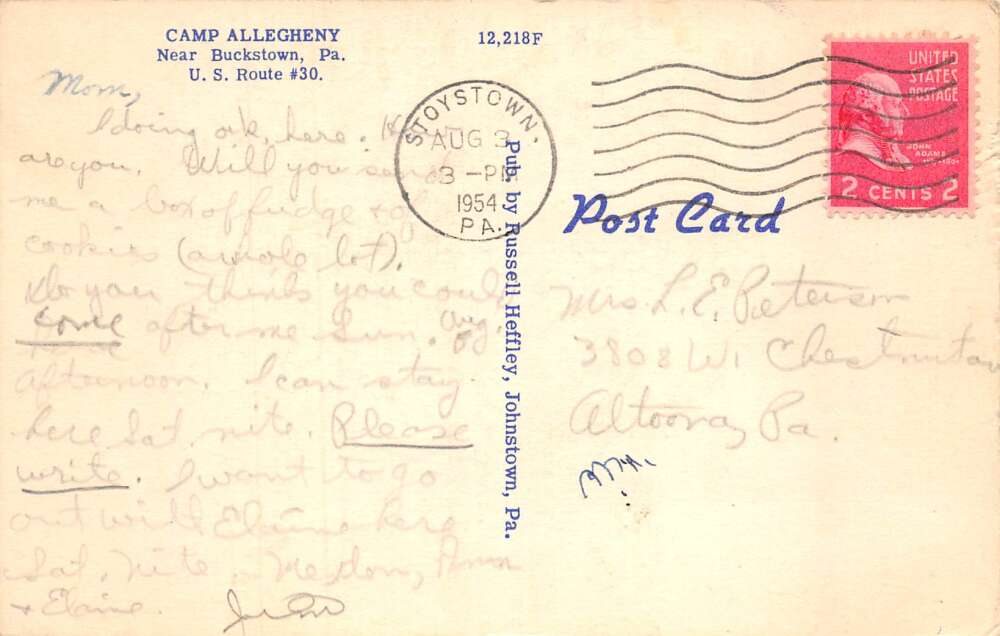 CAMP ALLEGHENY
Near Buckstown, Pa.
U. S. Route #30.
12,218F
STOYSTOWN.
AUG 3
3 -PM
1954
PA.
UNITED
STATES
POSTAGE
JOHN
ADAMS
2 CENTS 2
Post Card
Pub. by Russell Heffley, Johnstown, Pa.
Mom,
I doing o.k. here. How
are you. Will you send
me a box of fudge + of
cookies (a whole lot).
Do you think you could
come after me Sun. Aug. 8
afternoon. I can stay
here Sat. nite. Please
write. I want to go
out with Elaine here
Sat. nite.
+ Elaine.
Mrs L. E. Peterson
3808 W. Chestnut av
Altoona, Pa.